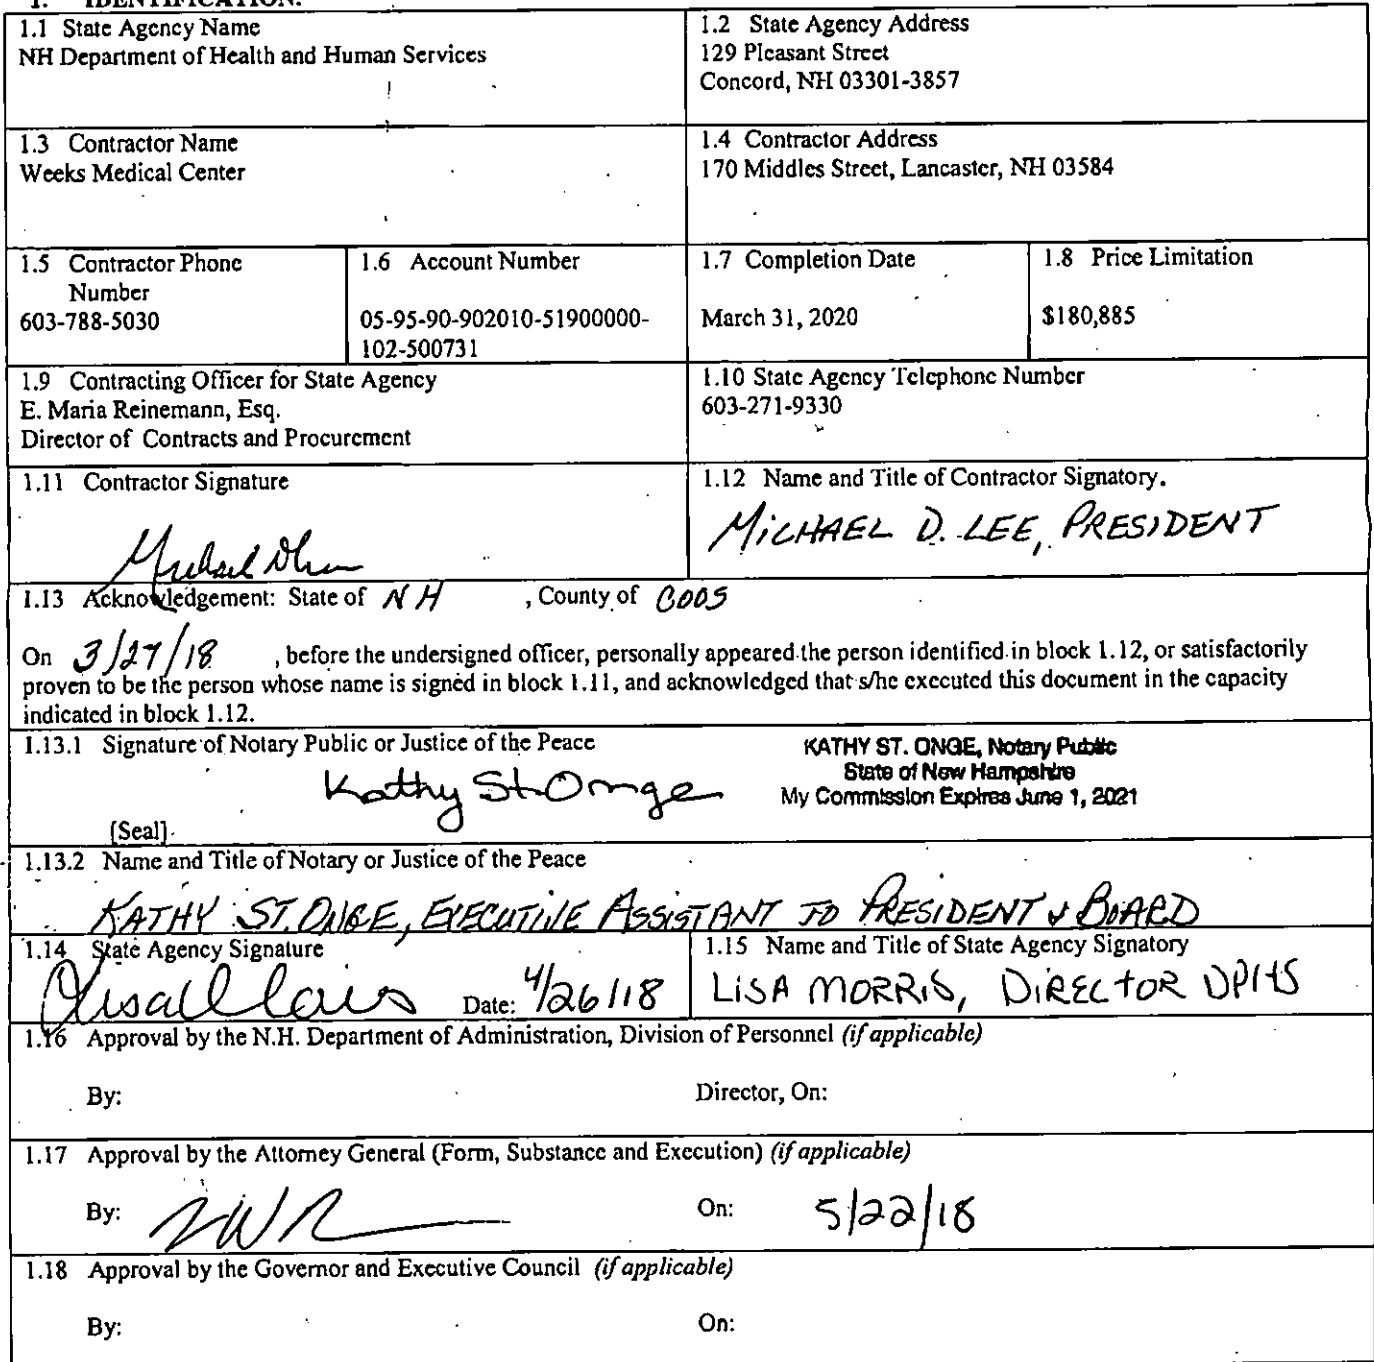 1. IDENTIFICATION.
1.1 State Agency Name
NH Department of Health and Human Services
1.2 State Agency Address
129 Pleasant Street
Concord, NH 03301-3857
1.3 Contractor Name
Weeks Medical Center
1.4 Contractor Address
170 Middles Street, Lancaster, NH 03584
1.5 Contractor Phone
Number
603-788-5030
1.6 Account Number
05-95-90-902010-51900000-
102-500731
1.7 Completion Date
March 31, 2020
1.8 Price Limitation
$180,885
1.9 Contracting Officer for State Agency
E. Maria Reinemann, Esq.
Director of Contracts and Procurement
1.10 State Agency Telephone Number
603-271-9330
1.11 Contractor Signature
1.12 Name and Title of Contractor Signatory.
MICHAEL D. LEE, PRESIDENT
1.13 Acknowledgement: State of NH , County of COOS
On 3/27/18 , before the undersigned officer, personally appeared the person identified in block 1.12, or satisfactorily
proven to be the person whose name is signed in block 1.11, and acknowledged that s/he executed this document in the capacity
indicated in block 1.12.
1.13.1 Signature of Notary Public or Justice of the Peace
KATHY ST. ONGE, Notary Public
State of New Hampshire
My Commission Expires June 1, 2021
Kathy St. Onge
[Seal]
1.13.2 Name and Title of Notary or Justice of the Peace
KATHY ST. ONGE, EXECUTIVE ASSISTANT TO PRESIDENT & BOARD
1.14 State Agency Signature
Date: 4/26/18
1.15 Name and Title of State Agency Signatory
LISA MORRIS, DIRECTOR DPHS
1.16 Approval by the N.H. Department of Administration, Division of Personnel (if applicable)
By:
Director, On:
1.17 Approval by the Attorney General (Form, Substance and Execution) (if applicable)
By:
On: 5/22/18
1.18 Approval by the Governor and Executive Council (if applicable)
By:
On: